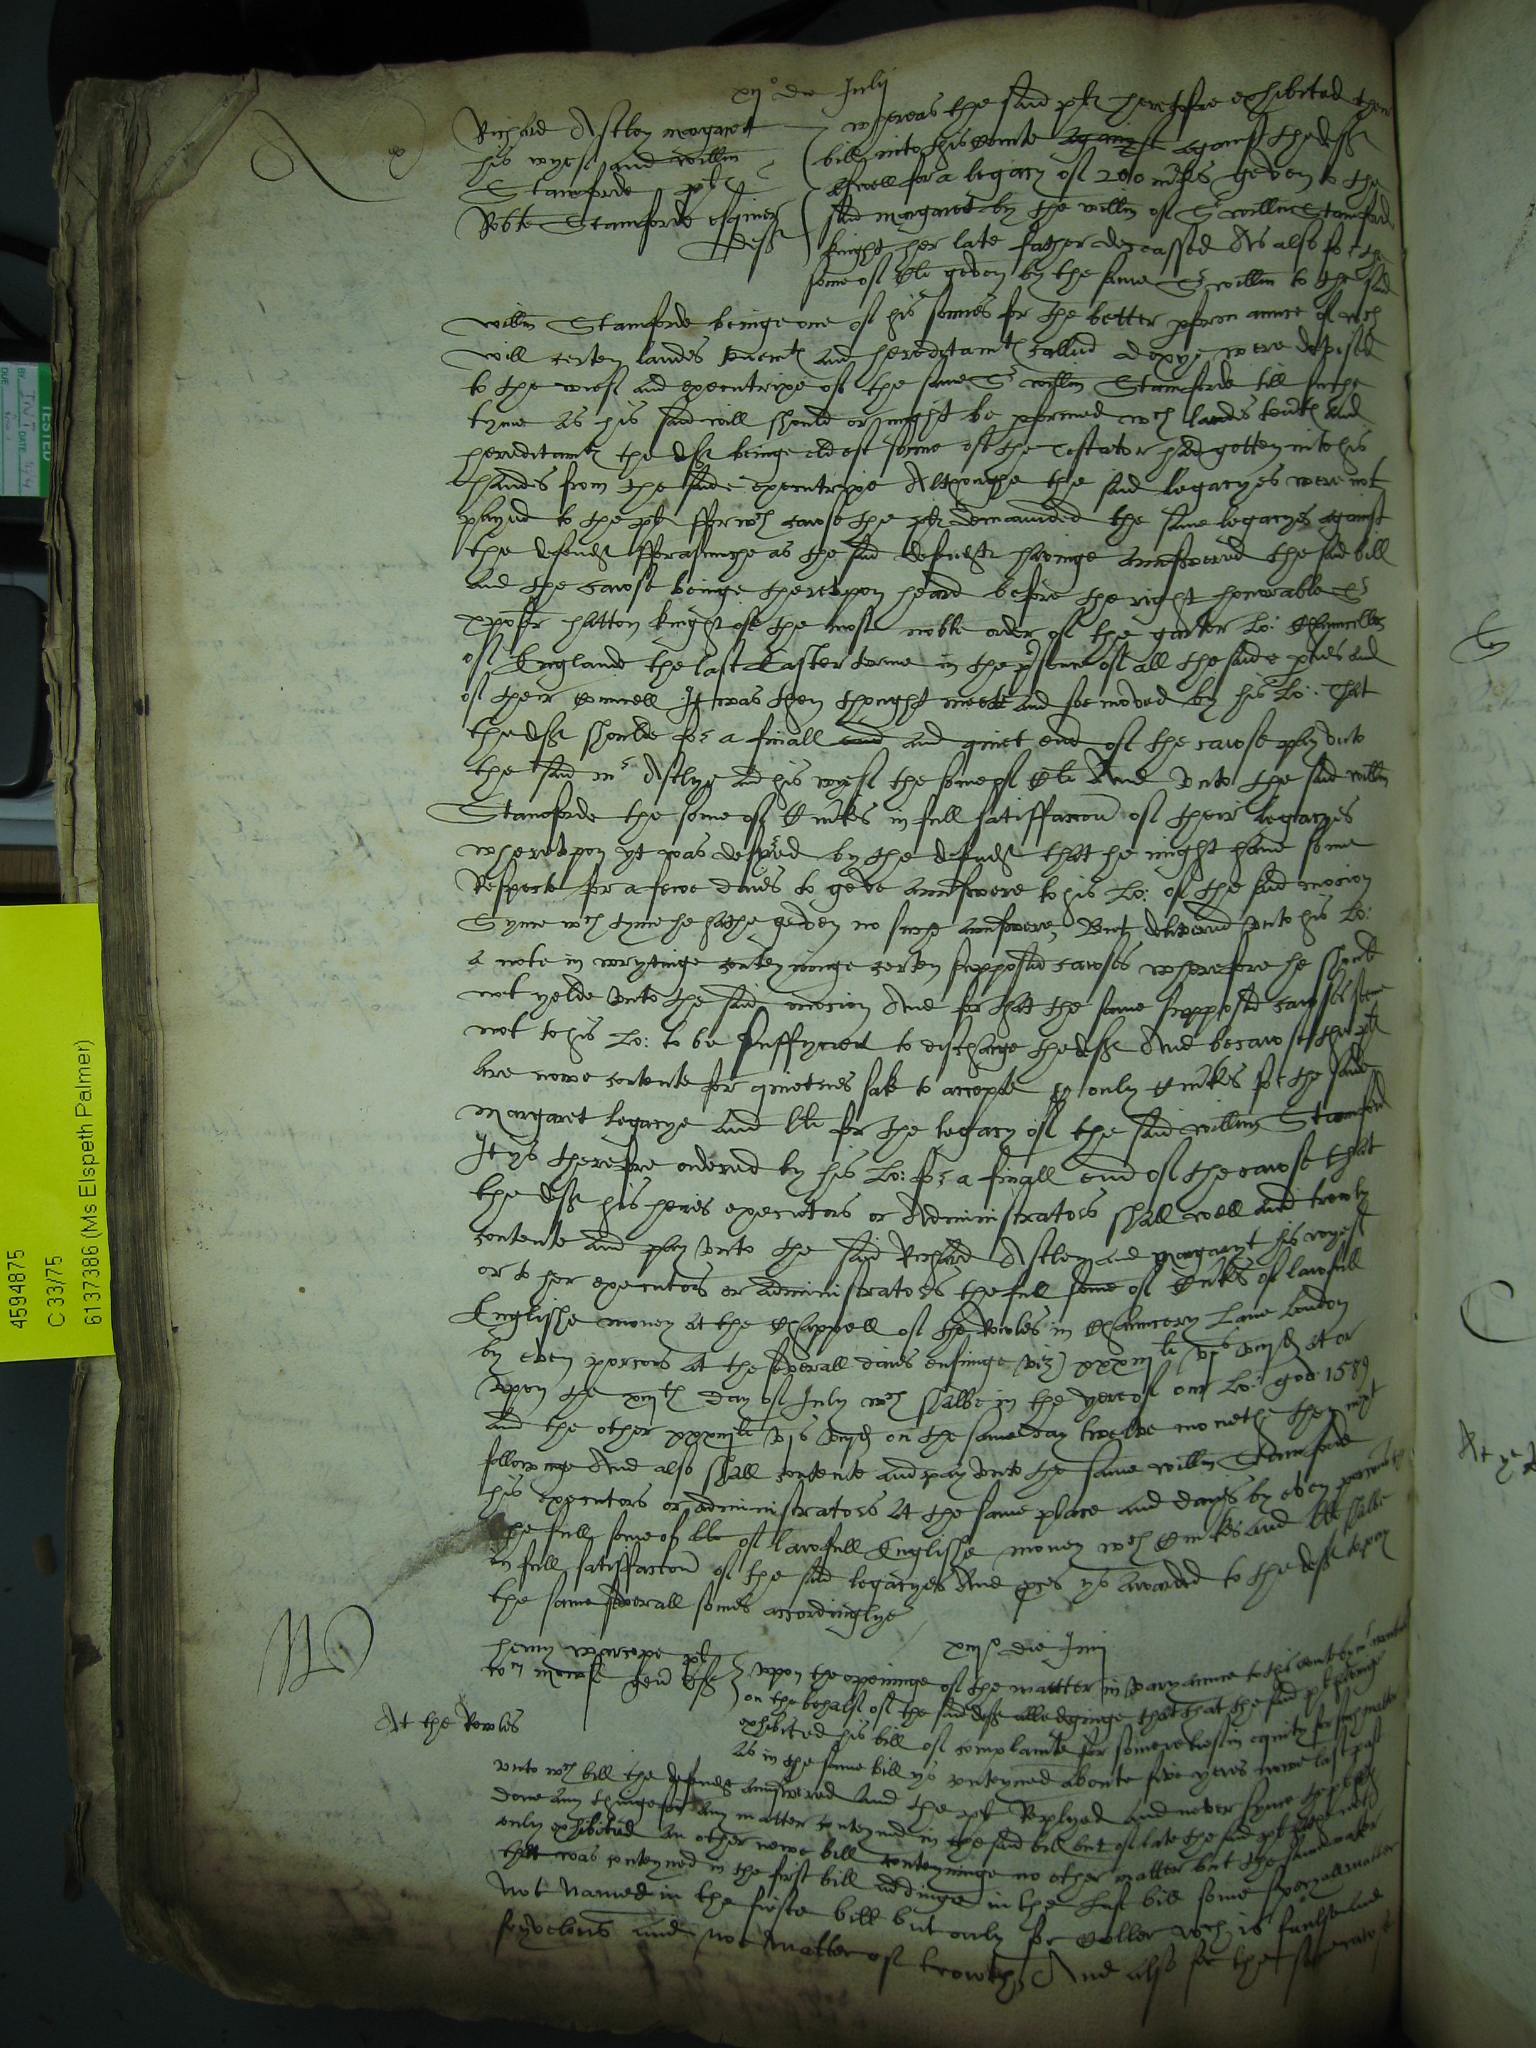 xij° die Julij
Richard Astley Margaret
his wyef and Willm
Stamforde plts
Robte Stamforde esquier
deft
whereas the said plts heretofore exhibited their
bill into this Courte against against the deft
aswell for a legacy of 200 mrkes geven to the
said Margaret by the willm of Sr Willm Stamford
knight her late father deceassed As also for the
some of Cli geven by the same Sr Willm to the said
Willm Stamforde beinge one of his sonnes for the better pformaunce of wch
will certen landes tenemts and hereditamts called were devised
to the wief and executrixe of the same Sr Willm Stamforde till suche
tyme as his said will should or might be pformed wch landes tents and
hereditamts the deft beinge eldest sonne of the Testator had gotten into his
handes from the saide executrixe Althoughe the said legacyes were not
payed to the plts ffor wch cawse the plts demaunded the same legacyes against
the defendt fforasmuche as the said defendt havinge aunswered the said bill
and the cawse beinge therevpon heard before the right honorable Sr
xpofer Hatton knight of the most noble order of the garter Lo: Chauncellor
of England the last Easter terme in the psence of all the saide pties and
of their counsell It was then thought meete and soe moved by his Lo: That
the deft shoulde for a finall end and quiet end of the cawse pay vnto
the said mr Astlye and his wyef the some of Cli And vnto the said Willm
Stamforde the some of C mrkes in full satisfaccon of their legacyes
wherevpon yt was desyred by the defendt that he might have some
Respecte for a fewe daies to geve aunswere to his Lo: of the said mocion
Synce wch tyme he hathe geven no such aunswere, But delivered vnto his Lo:
a note in wrytinge conteyninge certen supposed cawses wherefore he should
not yelde vnto the said mocion And for that the same supposed cawses seeme
not to his Lo: to be suffycient to discharge the deft And becawse the plts
are nowe contente for quietnes sake to accepte only C mrkes for the saide
Margaret legacye and Lli for the legacy of the said Willm Stamford
It ys therefore ordered by his Lo: for a finall end of the cawse that
the deft his heires executors or Administrators shall well and trewly
contente and pay vnto the said Richard Astley and Margaret his wyef
or to her executors or administrators the full some of C mrkes of lawfull
Englisshe money at the Chappell of the Rowles in Chauncery Lane London
by even porcons at the severall daies ensuinge viz) xxxiijli vjs viijd
vpon the xijth day of July wch shalbe in the yere of our Lo: god 1589
and the other xxxiijli vjs viijd on the same day twelve moneths then next
followinge And also shall contente and pay vnto the same Willm Stamforde
his executors or administrators at the same place and dayes by even porcons
the full some of Lli of lawfull Englisshe money wch C mrkes and Lli shalbe
in full satisfaccon of the said legacyes And pces ys awarded to the deft to pay
the same severall somes accordinglye
xiij° die Junij
Henry plt
deft
At the Rowles
vpon the openinge of the matter in varyaunce to this courte by mr
on the behalf of the said deft alledginge that that the said plt havinge
exhibited his bill of complainte for some relief in equity for such matter
as in the same bill ys conteyned aboute five yeres nowe last past
vnto wch bill the defendt aunswered and the plt Replyed and never synce the plt hath
done any thinge for any matter conteyned in the said bill but of late the said plt hath
only exhibited an other newe bill conteyninge no other matter but the same matter
that was conteyned in the first bill addinge in the last bill some speciall matter
not named in the firste bill but only for coller wch is faulse and
fryvelous and noe matter of trowth, And also for the same cawse
TESTED
BY
DATE
DUE
4594875
C 33/75
6137386 (Ms Elspeth Palmer)